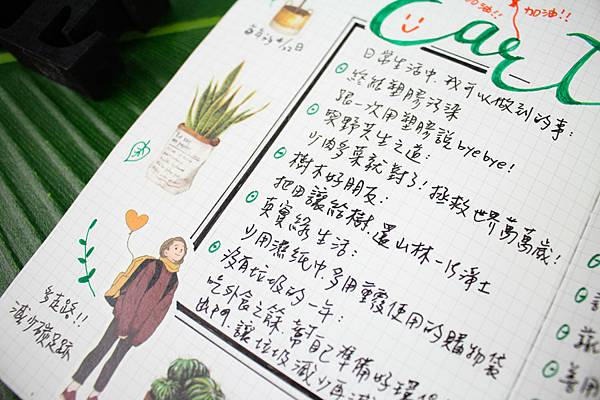 加油!!
加油!!
Car
日常生活中,我可以做到的事:
終結塑膠污染
跟一次用塑膠說byebye!
與野共生之道:
少肉多菜就對了!拯救世界萬萬歲!
樹木好朋友:
把田讓給樹.還山林一片淨土
真實綠生活:
少用濕紙巾.多用重覆使用的購物袋
沒有垃圾的一年:
吃外食之餘.幫自己準備好環保
出門.讓垃圾減少再減
多走路!!
減少碳足跡
善用